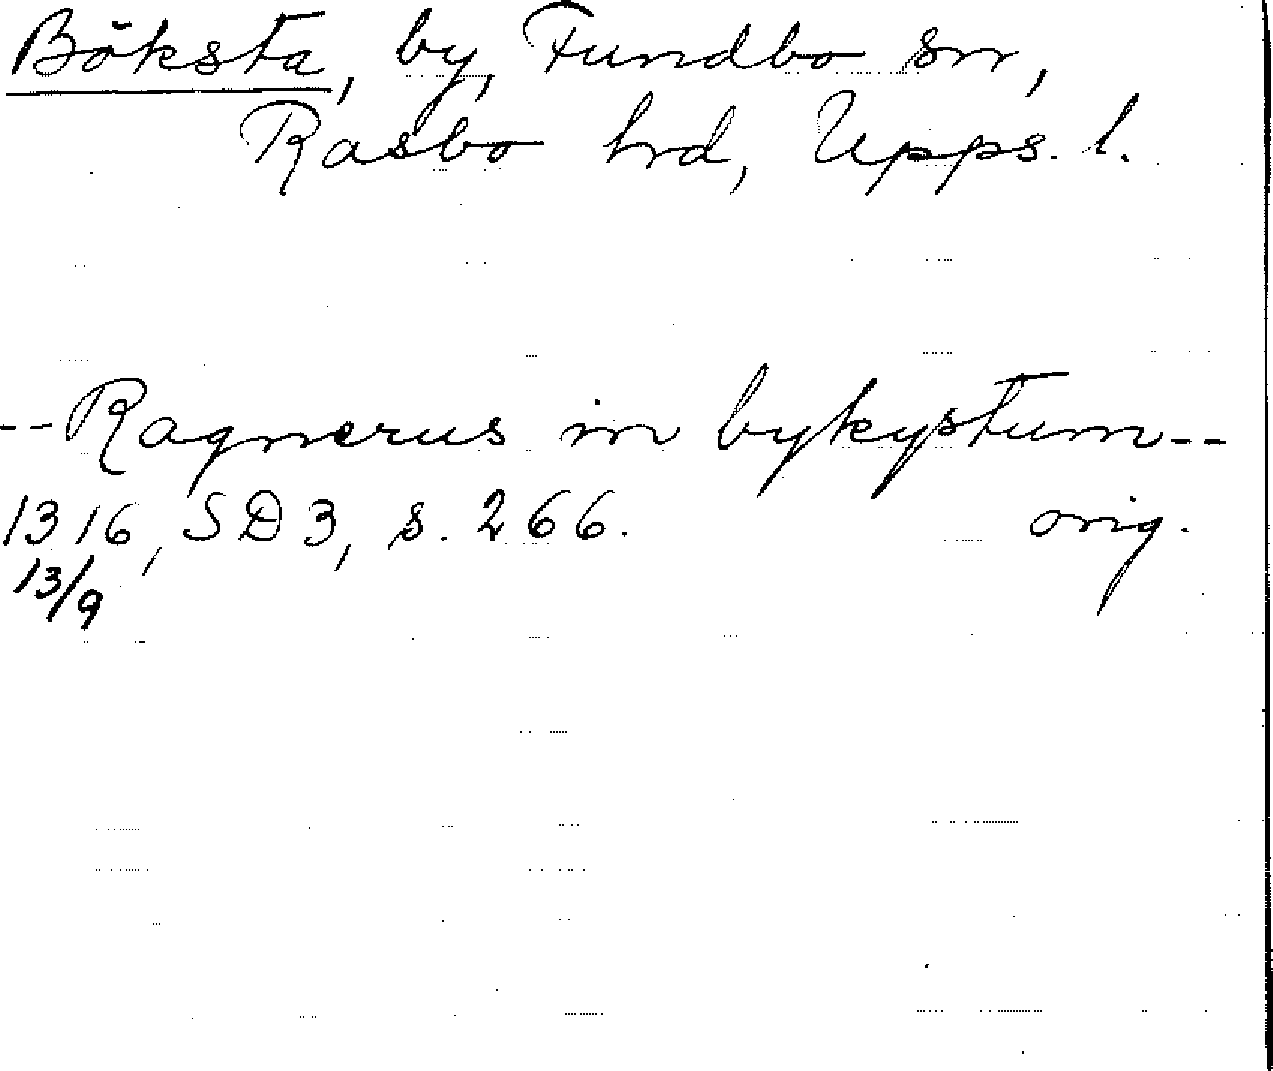 Böksta, by, Fundbo sn,
Rasbo hrd, Upps. l.
-- Ragnerus in bykystum --
1316, SD 3, s. 266. orig.
13/9